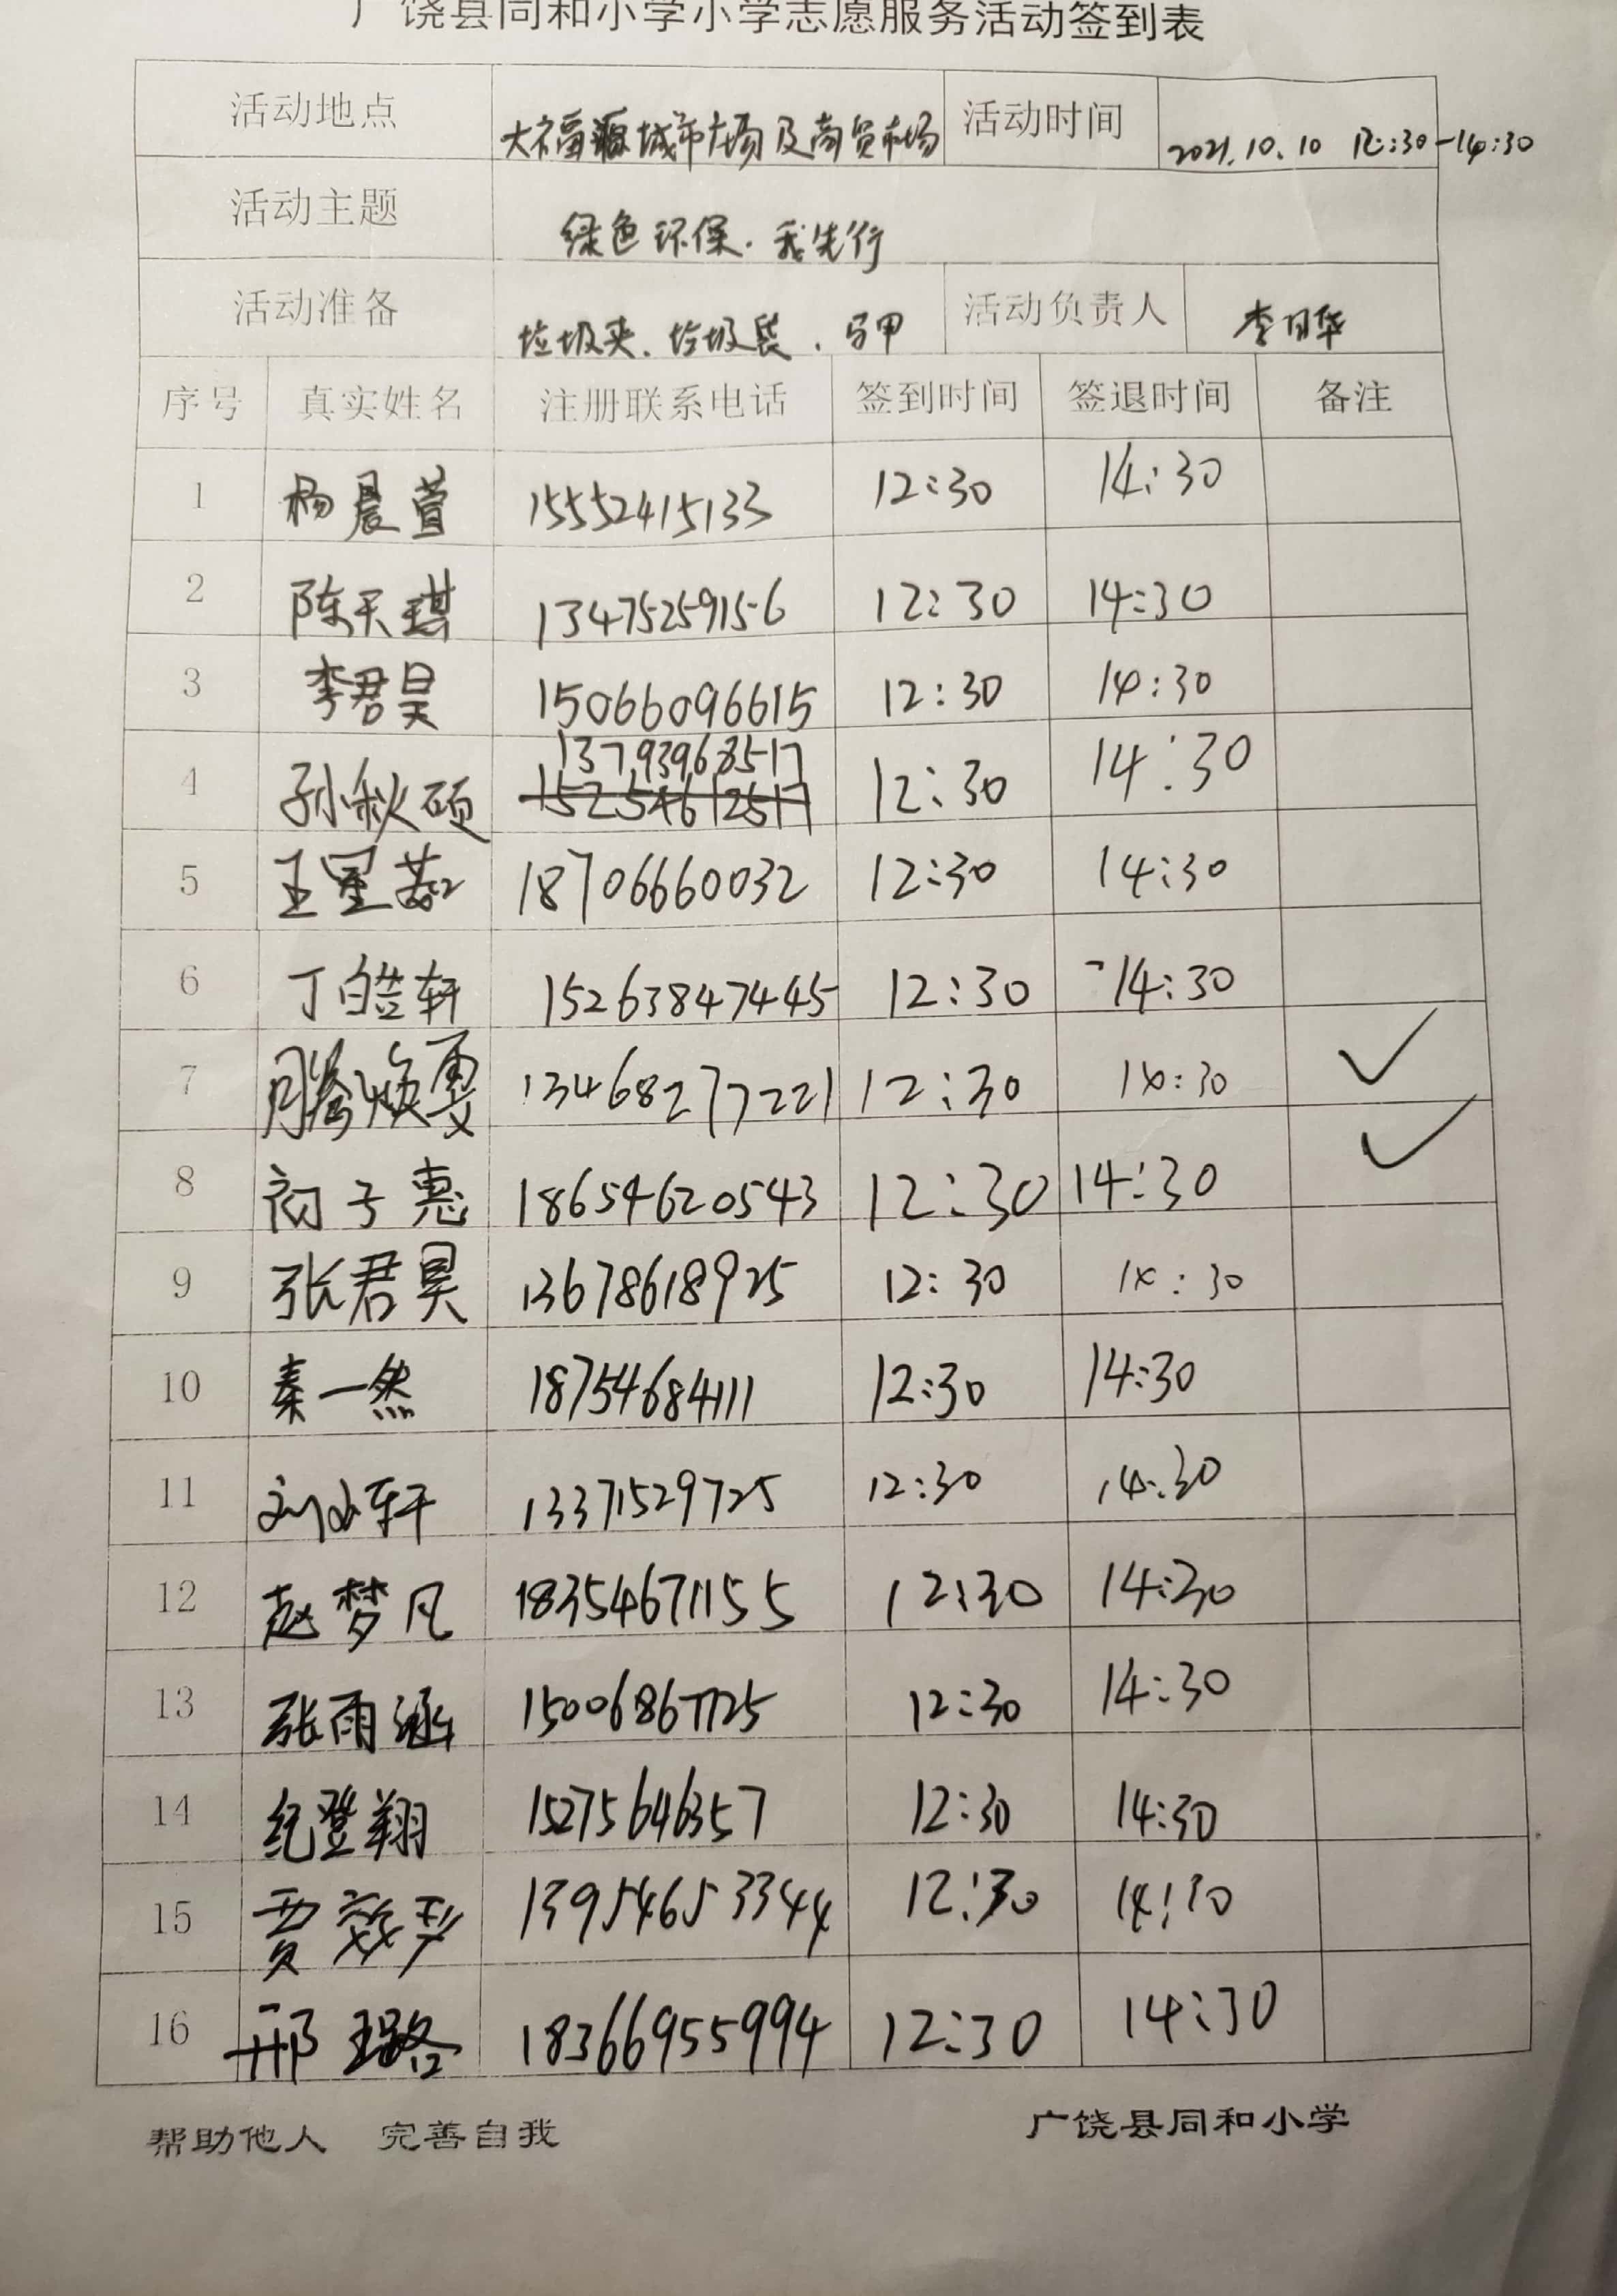 广饶县同和小学小学志愿服务活动签到表
活动地点 大福源城市广场及商贸市场 活动时间 2021.10.10 12:30-14:30
活动主题 绿色环保.我先行
活动准备 垃圾夹.垃圾袋.马甲 活动负责人 李月华
序号 真实姓名 注册联系电话 签到时间 签退时间 备注
1 杨晨萱 15552415133 12:30 14:30
2 陈天琪 13475259156 12:30 14:30
3 李君昊 15066096615 12:30 14:30
13793968517
4 孙秋硕 15254612517 12:30 14:30
5 王星茹 18706660032 12:30 14:30
6 丁皓轩 15263847445 12:30 14:30
7 13468277221 12:30 14:30 ✓
8 初子惠 18654620543 12:30 14:30 ✓
9 张君昊 13678618925 12:30 14:30
10 秦一然 18754684111 12:30 14:30
11 刘 轩 13371529725 12:30 14:30
12 赵梦凡 18354671155 12:30 14:30
13 张雨涵 15006867725 12:30 14:30
14 纪登翔 15275646357 12:30 14:30
15 贾 13954653344 12:30 14:30
16 邢璐 18366955994 12:30 14:30
帮助他人 完善自我 广饶县同和小学